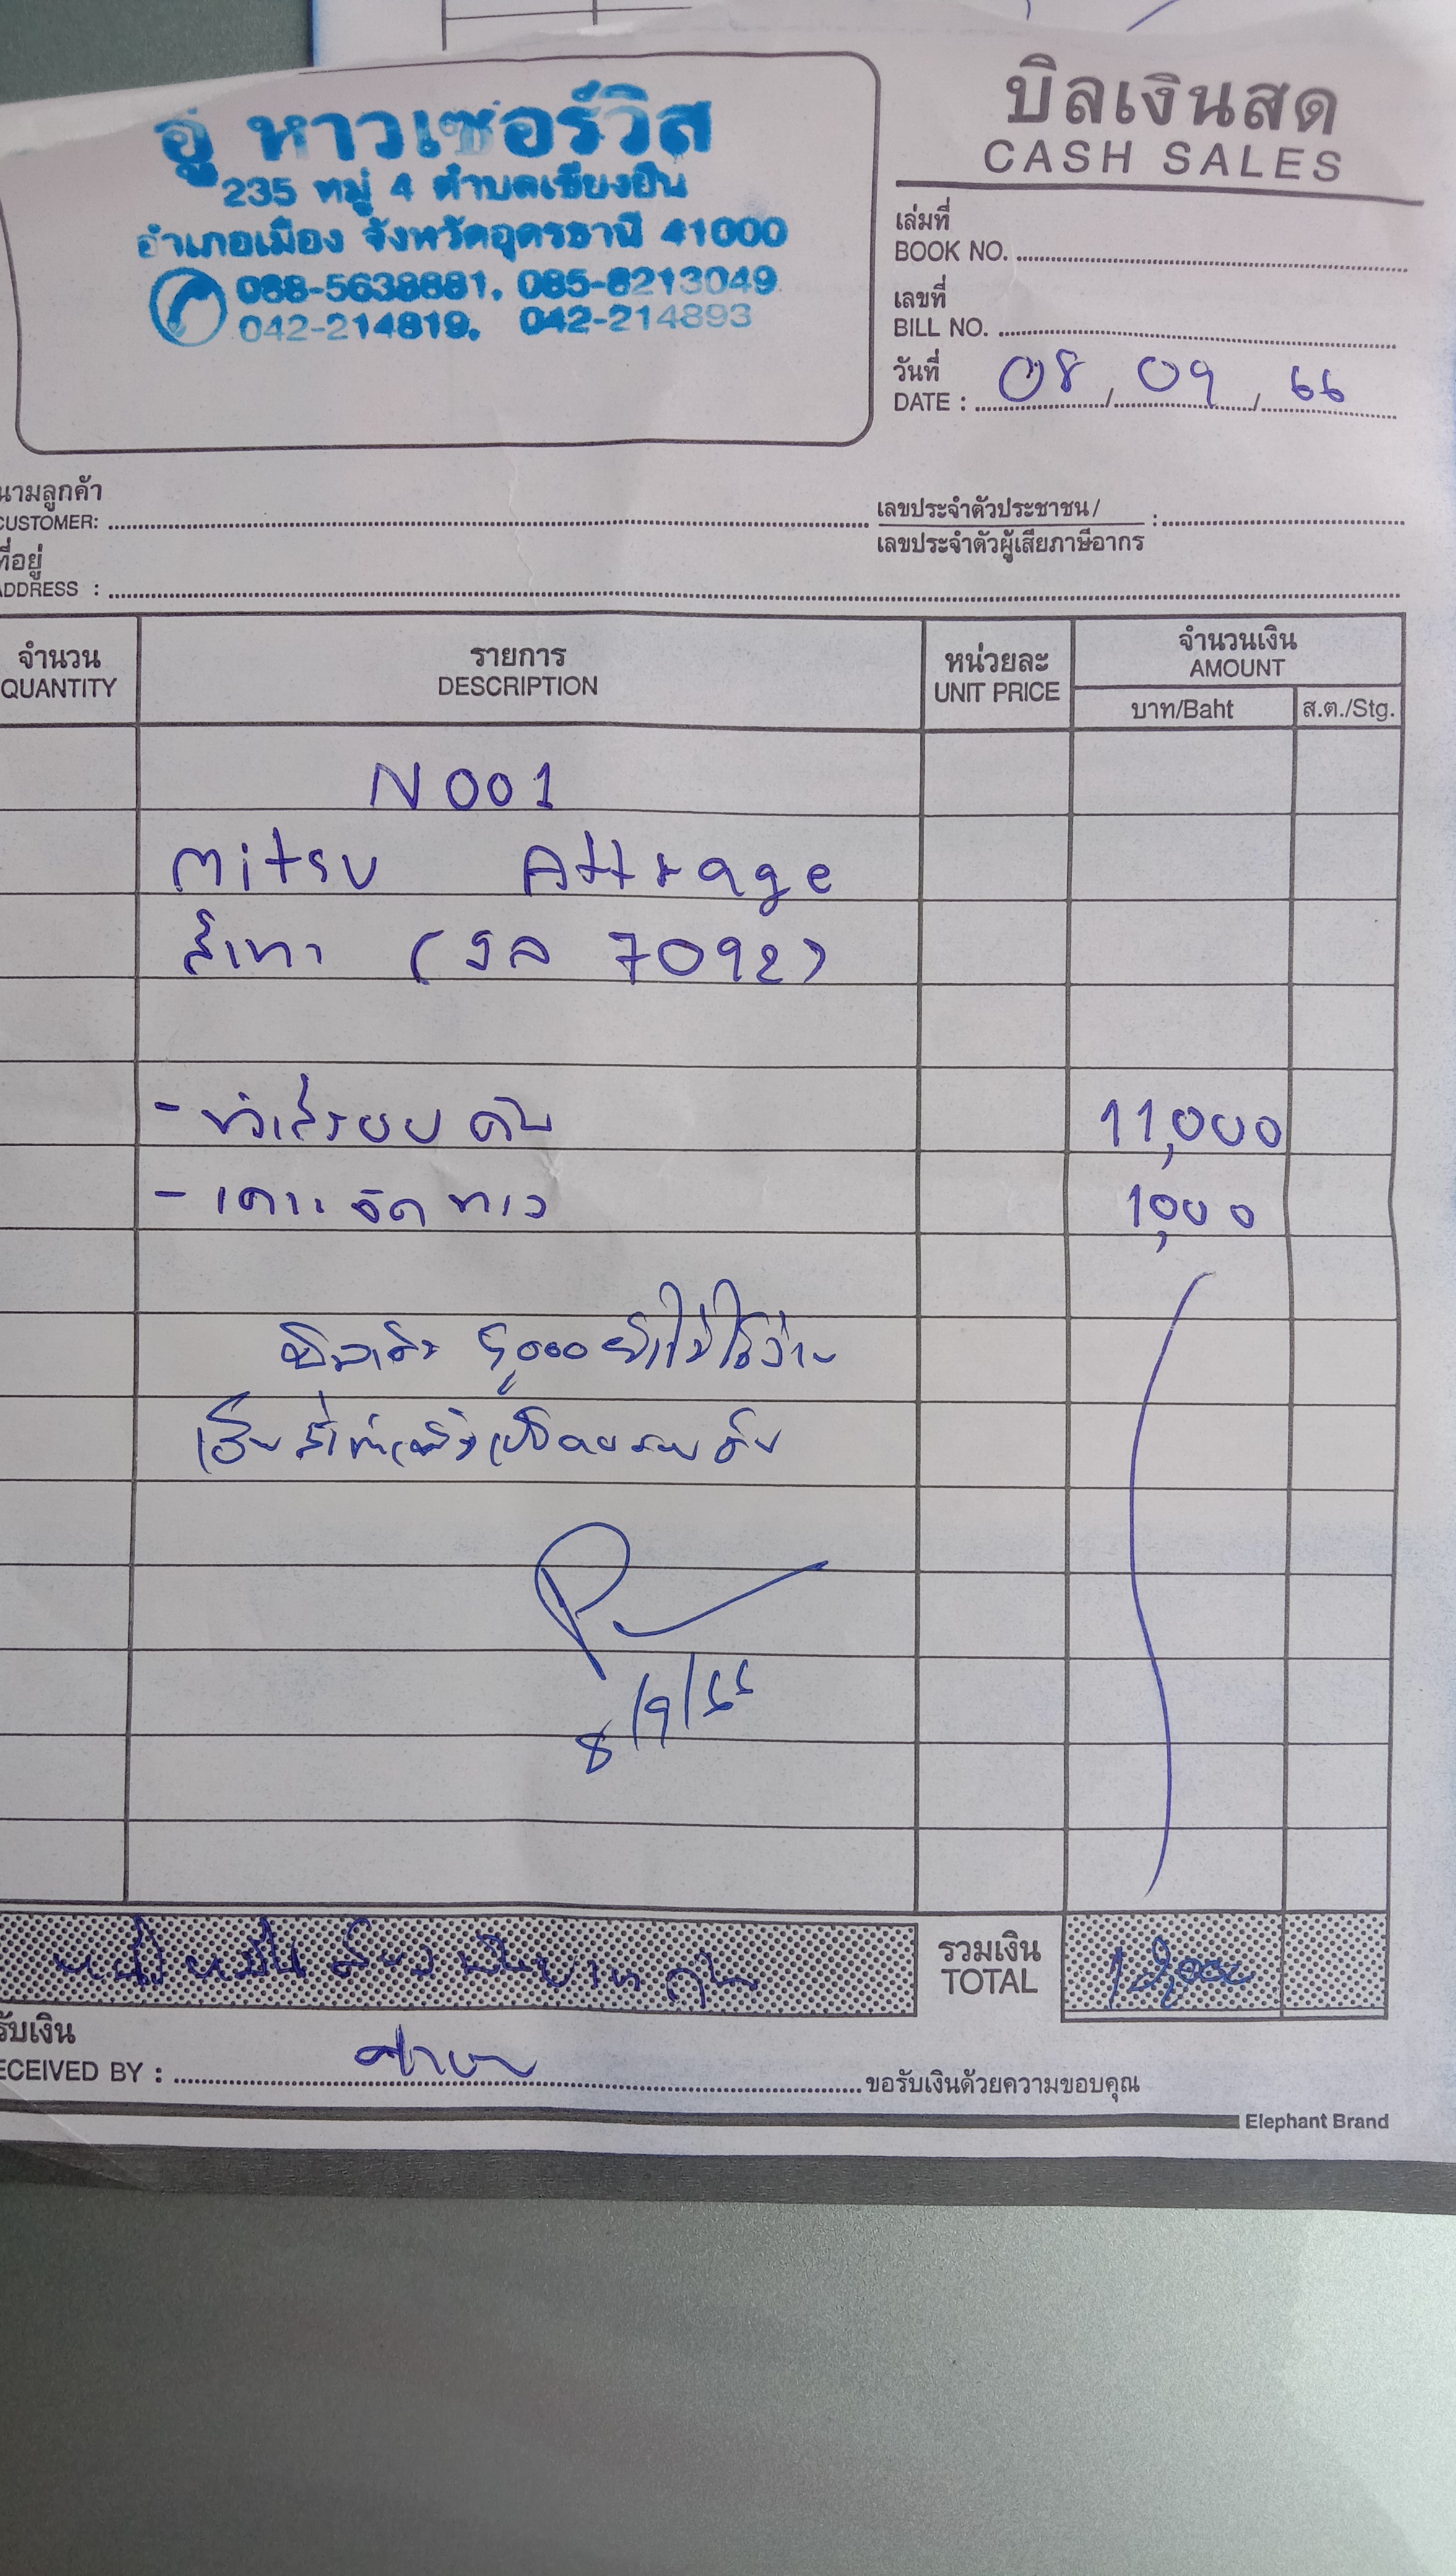 อู่ หาวเซอร์วิส
235 หมู่ 4 ตำบลเชียงยืน
อำเภอเมือง จังหวัดอุดรธานี 41000
088-5638881, 085-8213049
042-214819, 042-214893
บิลเงินสด
CASH SALES
เล่มที่
BOOK NO.
เลขที่
BILL NO.
วันที่
DATE : 08 / 09 / 66
นามลูกค้า
CUSTOMER:
เลขประจำตัวประชาชน/
เลขประจำตัวผู้เสียภาษีอากร :
ที่อยู่
ADDRESS :
จำนวน
QUANTITY
รายการ
DESCRIPTION
หน่วยละ
UNIT PRICE
จำนวนเงิน
AMOUNT
บาท/Baht
ส.ต./Stg.
N001
Mitsu Attrage
สีเทา ( 7092)
- ทำสีรอบคัน 11,000
- เคาะ 1,000
8/9/66
หนึ่งหมื่นสองพันบาทถ้วน
รวมเงิน
TOTAL
12,000
รับเงิน
ECEIVED BY :
ขอรับเงินด้วยความขอบคุณ
Elephant Brand